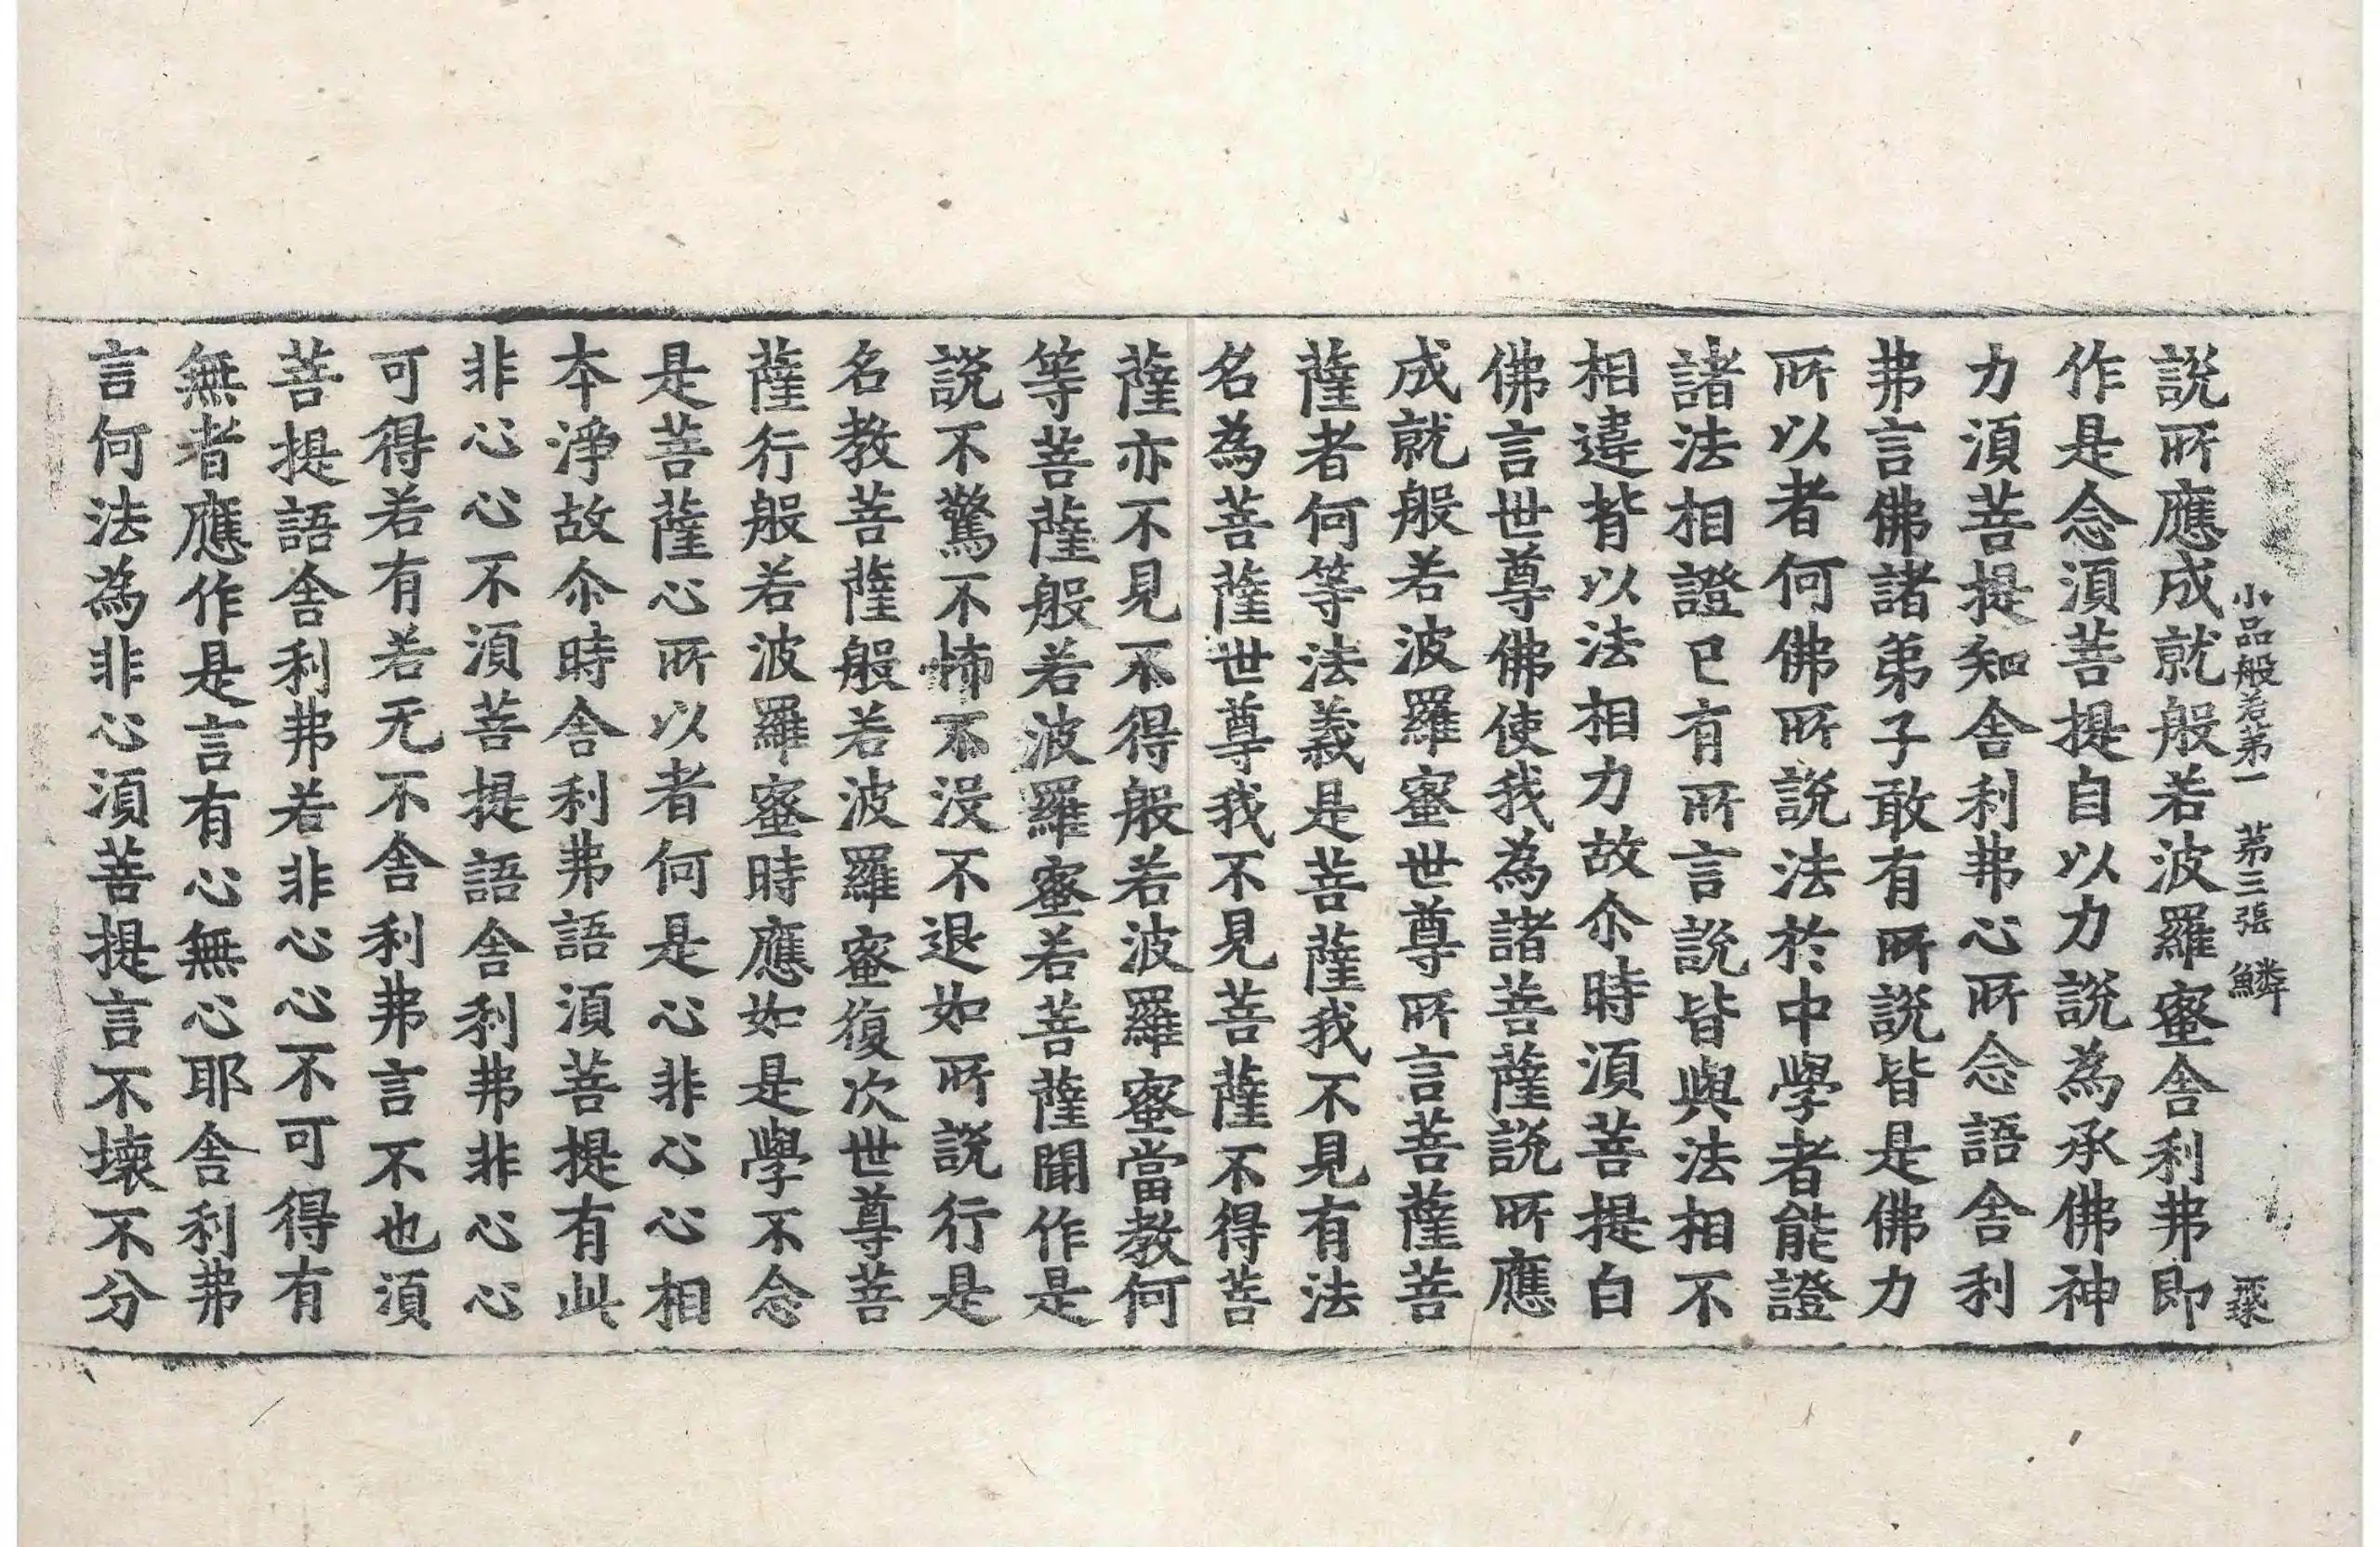 小品般若第一 第三張 鱗
說所應成就般若波羅蜜舍利弗即
作是念須菩提自以力說為承佛神
力須菩提知舍利弗心所念語舍利
弗言佛諸弟子敢有所說皆是佛力
所以者何佛所說法於中學者能證
諸法相證已有所言說皆與法相不
相違背以法相力故尒時須菩提白
佛言世尊佛使我為諸菩薩說所應
成就般若波羅蜜世尊所言菩薩菩
薩者何等法義是菩薩我不見有法
名為菩薩世尊我不見菩薩不得菩
薩亦不見不得般若波羅蜜當教何
等菩薩般若波羅蜜若菩薩聞作是
說不驚不怖不没不退如所說行是
名教菩薩般若波羅蜜復次世尊菩
薩行般若波羅蜜時應如是學不念
是菩薩心所以者何是心非心心相
本淨故尒時舍利弗語須菩提有此
非心心不須菩提語舍利弗非心心
可得若有若无不舍利弗言不也須
菩提語舍利弗若非心心不可得有
無者應作是言有心無心耶舍利弗
言何法為非心須菩提言不壞不分